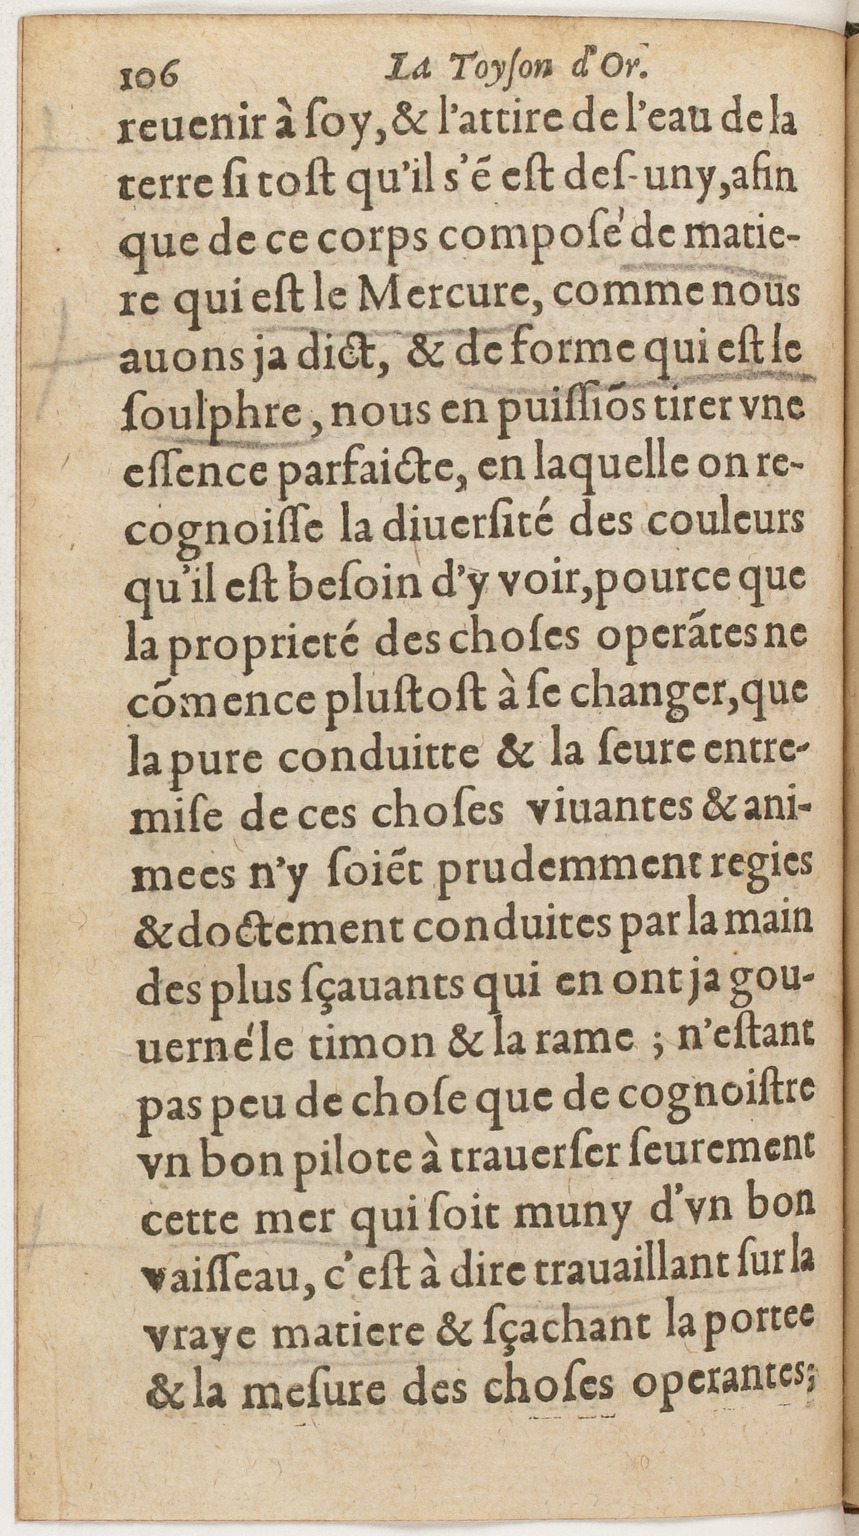 106 La Toyſon d'Or.
reuenir à ſoy, & l'attire de l'eau de la
terre ſi toſt qu'il s'ẽ eſt deſ-uny, afin
que de ce corps compoſé de matie-
re qui eſt le Mercure, comme nous
auons ja dict, & de forme qui eſt le
ſoulphre, nous en puiſſiõs tirer vne
eſſence parfaicte, en laquelle on re-
cognoiſſe la diuerſité des couleurs
qu'il eſt beſoin d'y voir, pource que
la proprieté des choſes operãtes ne
cõmence pluſtoſt à ſe changer, que
la pure conduitte & la ſeure entre-
miſe de ces choſes viuantes & ani-
mees n'y ſoiẽt prudemment regies
& doctement conduites par la main
des plus ſçauants qui en ont ja gou-
uerné le timon & la rame ; n'eſtant
pas peu de choſe que de cognoiſtre
vn bon pilote à trauerſer ſeurement
cette mer qui ſoit muny d'vn bon
vaiſſeau, c'eſt à dire trauaillant ſur la
vraye matiere & ſçachant la portee
& la meſure des choſes operantes;